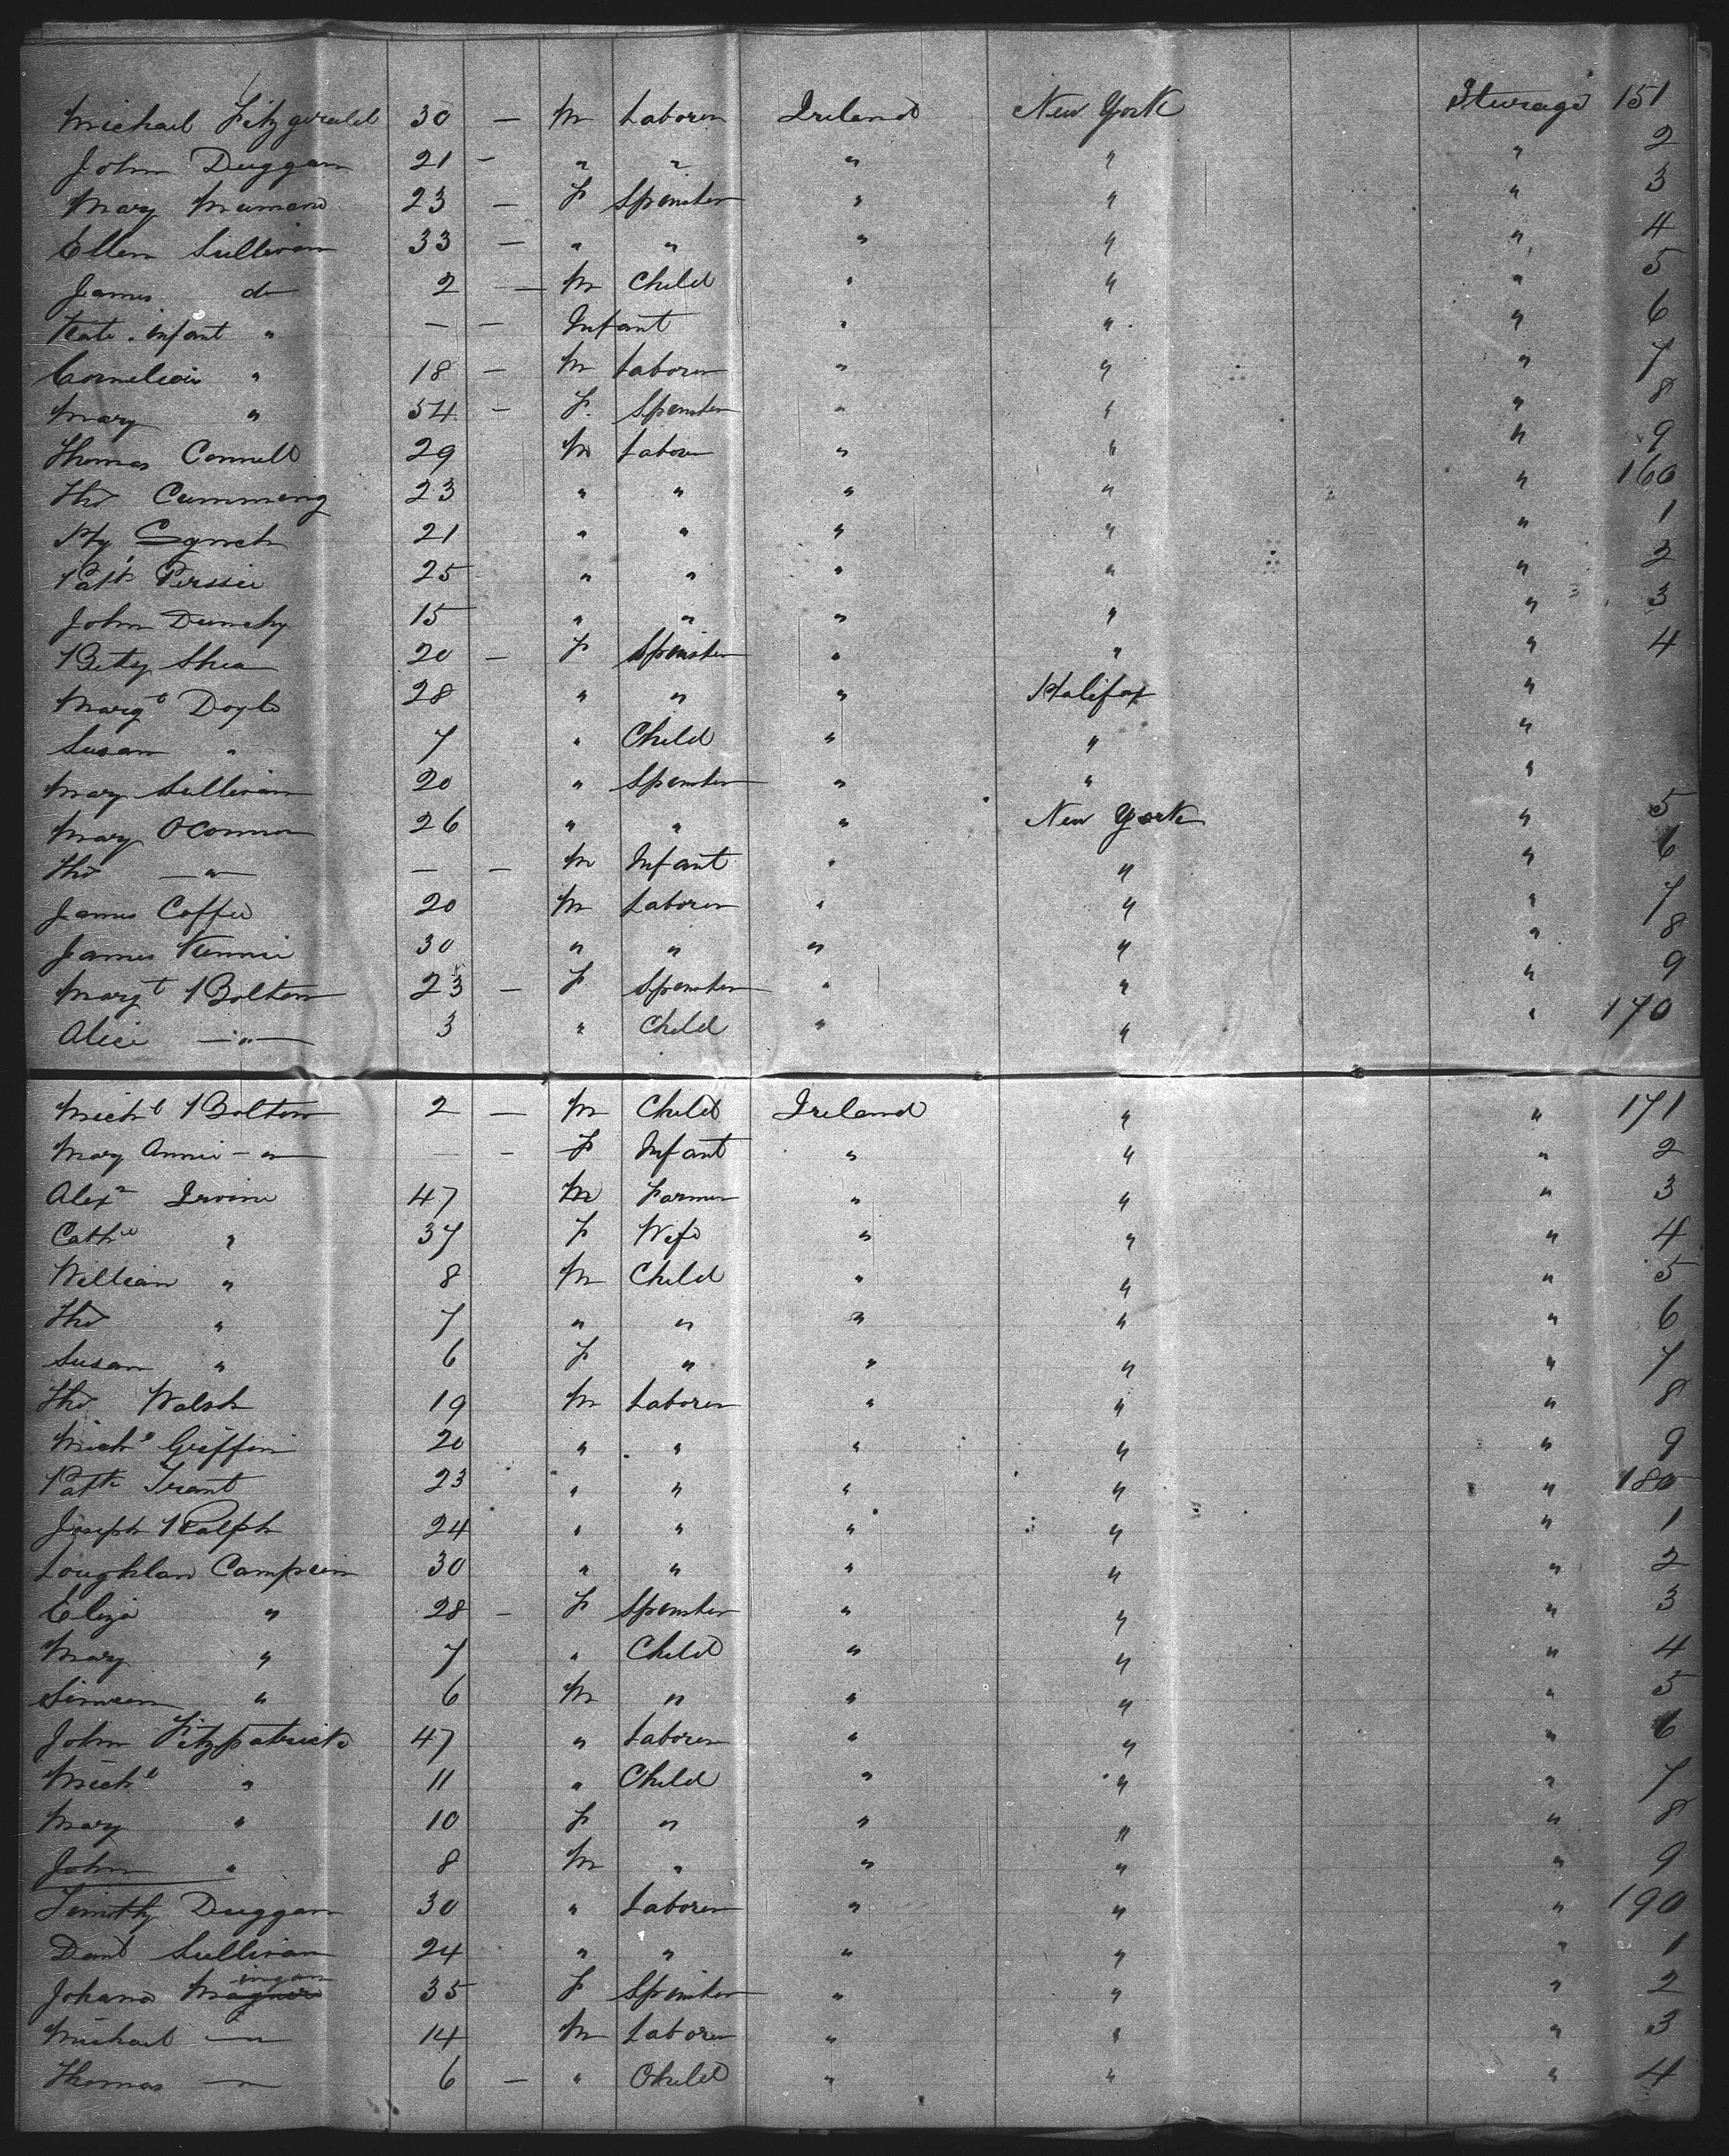 Michael Fitzgerald 30 — M Laborer Ireland New York Sturage 151
John Duggan 21 — " " " " " 2
Mary 23 — F Spinster " " " 3
Ellen Sullivan 33 — " " " " " 4
James do 2 — M Child " " " 5
Kate . infant " — — Infant " " " 6
Cornelious " 18 — M Laborer " " " 7
Mary " 54 — F. Spinster " " " 8
Thomas Connell 29 M Laborer " " " 9
Thos Cumming 23 " " " " " 160
Hy Lynch 21 " " " " " 1
Patk Perssie 25 " " " " " 2
John Dunchy 15 " " " " " 3
Betty Shea 20 — F Spinster " " " 4
Margt Doyle 28 " " " Halifax "
Susan " 7 " Child " " "
Mary Sullivan 20 " Spinster " " "
Mary OConnor 26 " " " New York " 5
Thos —"— — — M Infant " " " 6
James Coffee 20 M Laborer " " " 7
James Kennie 30 " " " " " 8
Margt Bolton 23 — F Spinster " " " 9
Alice —"— 3 " Child " " " 170
Michl Bolton 2 — M Child Ireland " " 171
Mary Annie —"— — — F Infant " " " 2
Alexr Irvine 47 M Farmer " " " 3
Cathe " 37 F Wife " " " 4
William " 8 M Child " " " 5
Thos " 7 " " " " " 6
Susan " 6 F " " " " 7
Thos Walsh 19 M Laborer " " " 8
Michl Griffin 20 " " " " " 9
Patk Trant 23 " " " " " 180
Joseph Ralph 24 " " " " " 1
Loughlan Campion 30 " " " " " 2
Eliza " 28 — F Spinster " " " 3
Mary " 7 " Child " " " 4
Simeon " 6 M " " " " 5
John Fitzpatrick 47 " Laborer " " " 6
Michl " 11 " Child " " " 7
Mary " 10 F " " " " 8
John " 8 M " " " " 9
Timothy Duggan 30 " Laborer " " " 190
Danl Sullivan 24 " " " " " 1
Johana 35 F Spinster " " " 2
Michael —"— 14 M Laborer " " " 3
Thomas —"— 6 — " Child " " " 4